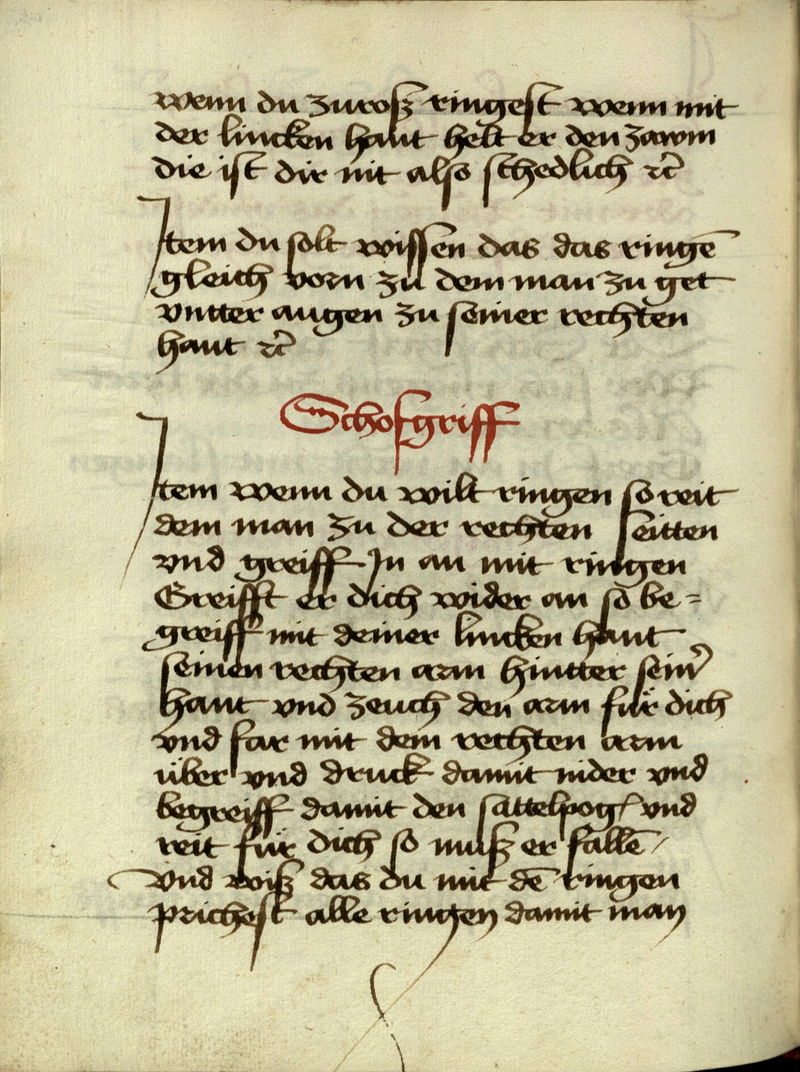 wenn du zuroß ringest wenn mit
der lincken hant helt er den zawm
die ist dir nit also schedlich ꝛc̃
Item du solt wissen das das ringē
gleich vorn zu dem man zu get
vntter augen zu seiner rechten
hant ꝛc̃
Schosgriff
Item wenn du wilt ringen so reit
dem man zu der rechten seitten
vnd greiff Jn an mit ringen
Greifft er dich wider an so be=
greiff mit deiner lincken hant
seinen rechten arm hintter sein᷑
hant vnd zeuch den arm für dich
vnd far mit dem rechten arm
über vnd druck damit nider vnd
begreiff damit den sattelpog / vnd
reit für dich so muß er fallē /
Vnd wiß das du mit dē ringen
prichest alle ringen damit man